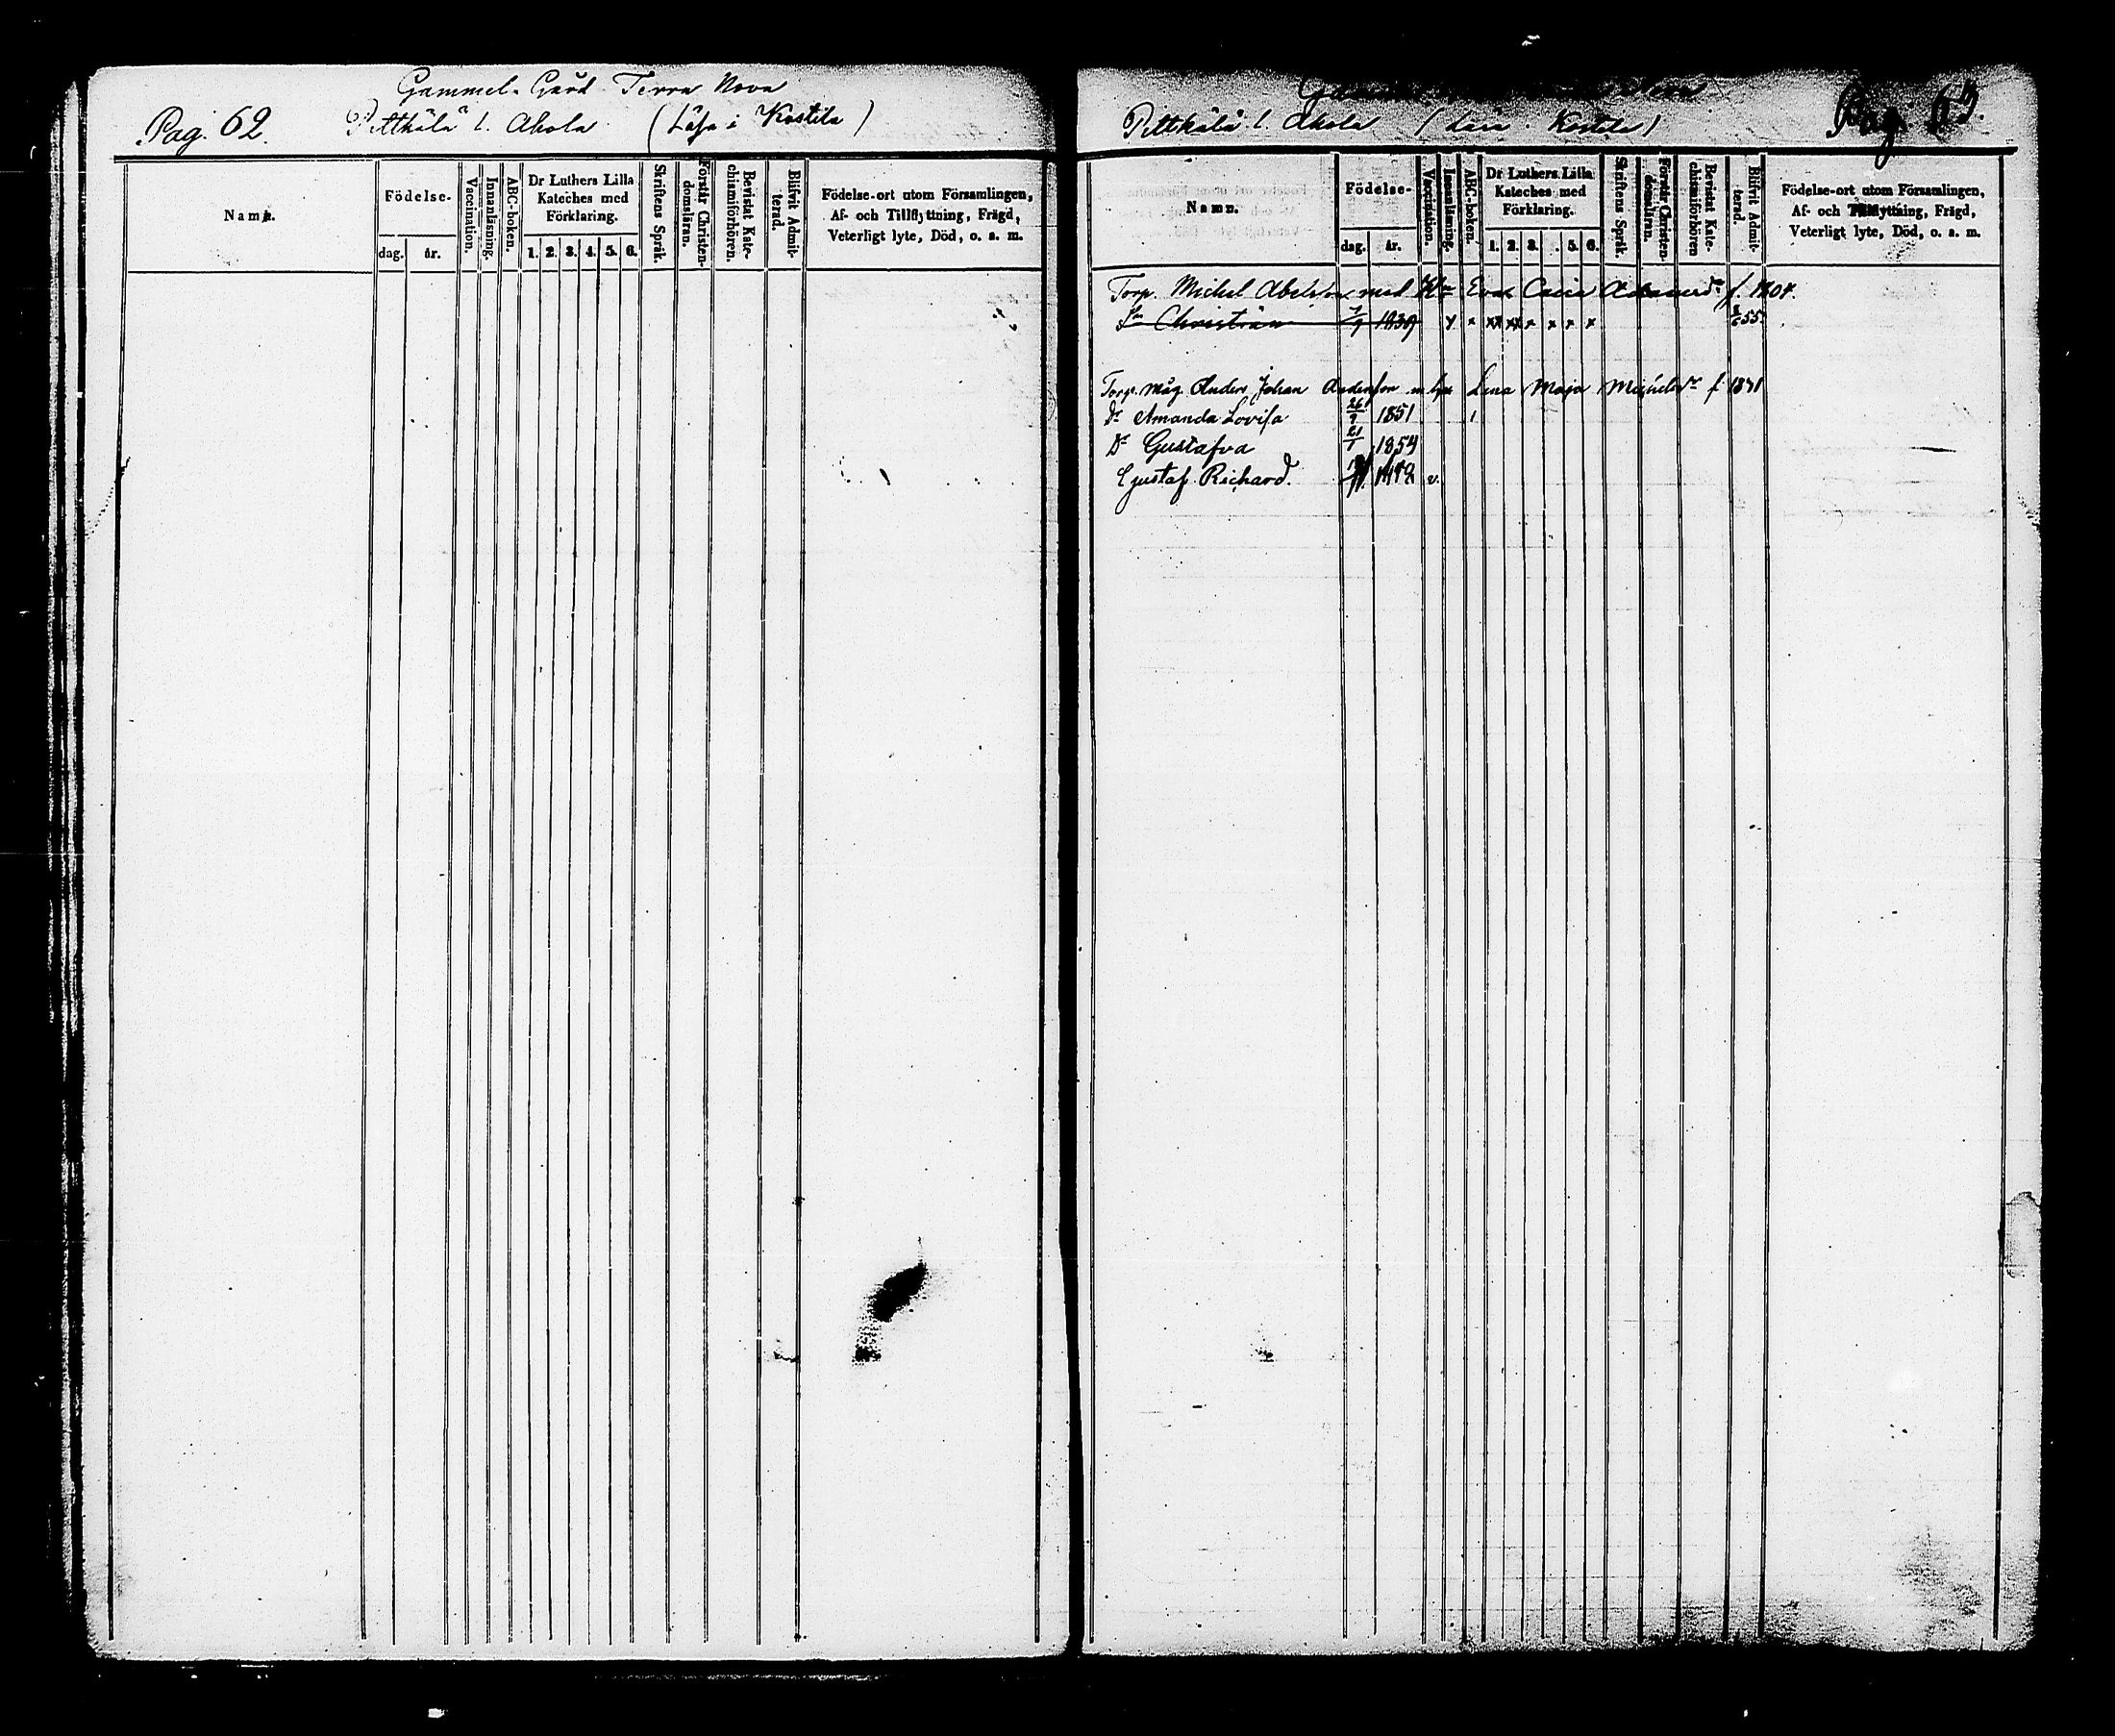 Gammel-Gård Terra Nova
Pag. 62. Pittkälä l. Ahola (Läsa i Kostila)
Namn.
Födelse-
dag. år.
Vaccination.
Innanläsning.
ABC-boken.
Dr Luthers Lilla Kateches med Förklaring.
1. 2. 3. 4. 5. 6.
Skriftens Språk.
Förstår Christendomsläran.
Bevistat Katechismiförhören.
Blifvit Admitterad.
Födelse-ort utom Församlingen,
Af- och Tillflyttning, Frägd,
Veterligt lyte, Död, o. s. m.
Pittkälä l. Ahola ( Kostila) Pag. 63.
Namn.
Födelse-
dag. år.
Vaccination.
Innanläsning.
ABC-boken.
Dr Luthers Lilla
Kateches med
Förklaring.
1. 2. 3. . 5. 6.
Skriftens Språk.
Förstår Christen-
domsläran.
Bevistat Kate-
chismiförhören
Blifvit Admit-
terad.
Födelse-ort utom Församlingen,
Af- och Tillflyttning, Frägd,
Veterligt lyte, Död, o. s. m.
Torp. Michel Abelsson med Eva Caisa f. 1804.
Sn Christian 1839 55
Torp. måg Anders Johan Andersson Lena Maja f. 1831
Dr Amanda Lovisa 26/9 1851
Dr Gustafva 21/1 1854
Gustaf Richard. v.